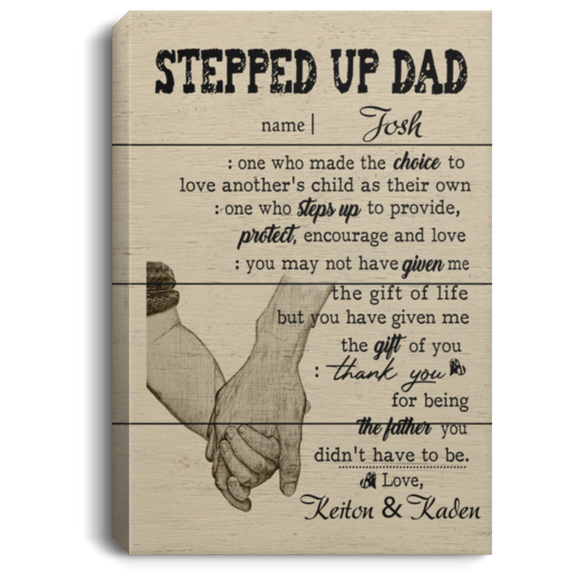 STEPPED UP DAD
name | Josh
: one who made the choice to
love another's child as their own
: one who steps up to provide,
protect, encourage and love
: you may not have given me
the gift of life
but you have given me
the gift of you
: thank you
for being
the father you
didn't have to be.
Love,
Keiton & Kaden